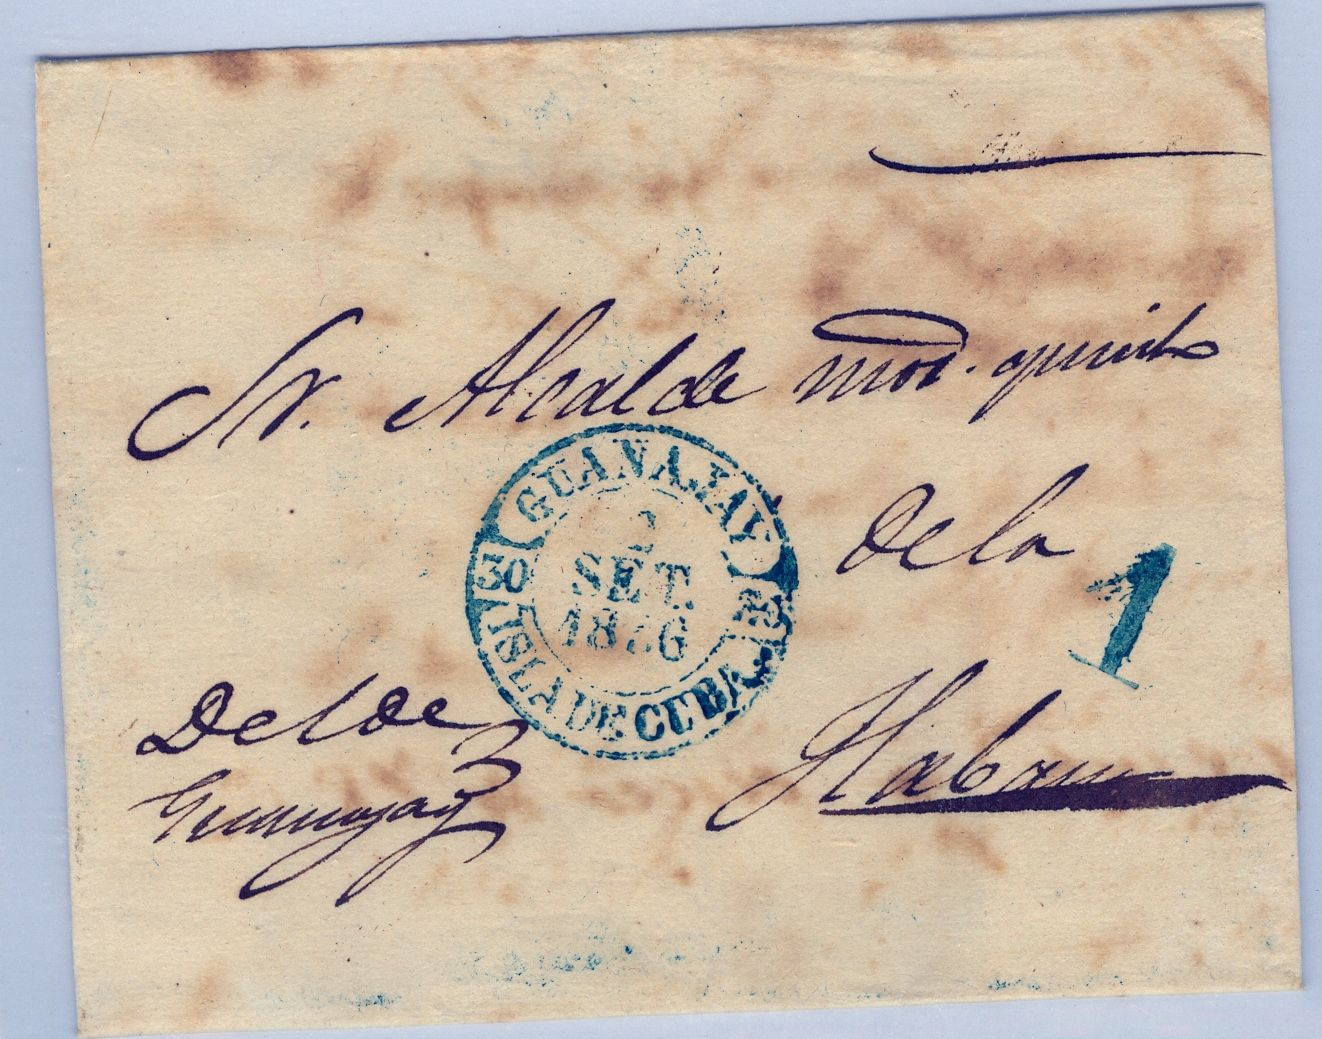 Sr. Alcalde mor. quinto
de la
Habana
Del de
Guanajay
GUANAJAY
30
2
SET.
ISLA DE CUBA
1